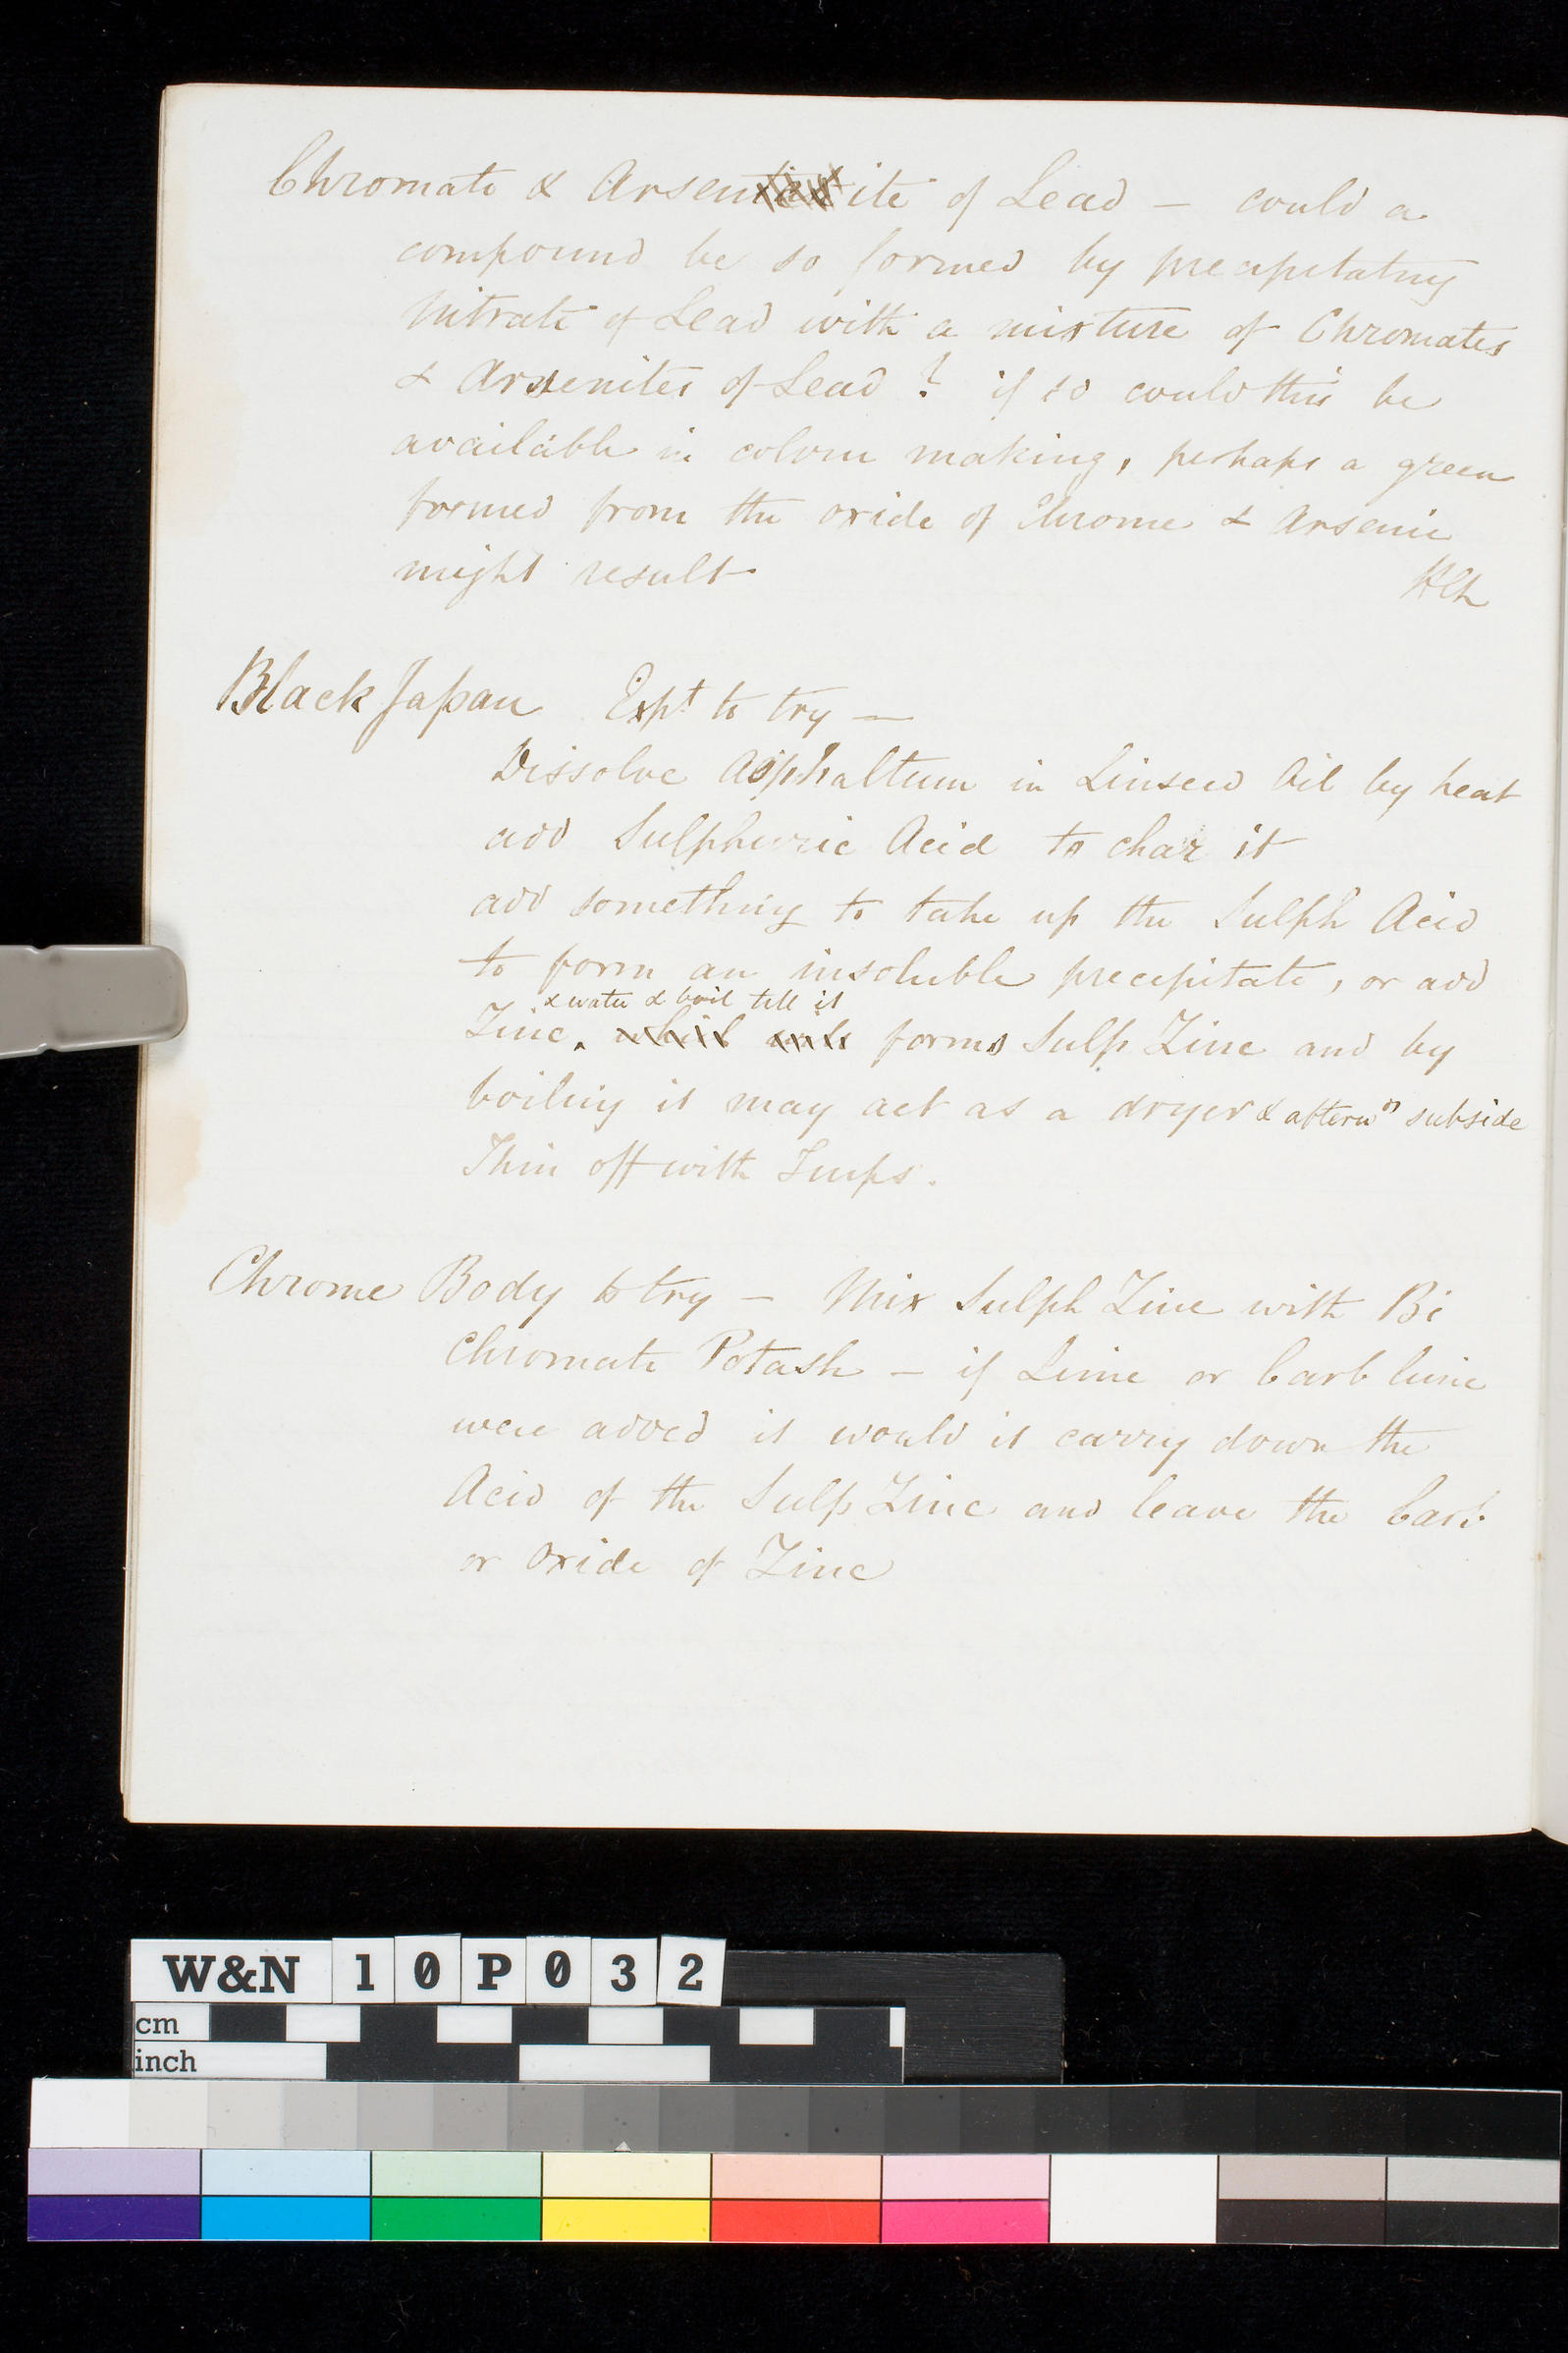 Chromate & Arsenite of Lead — could a
compound be so formed by precipitating
Nitrate of Lead with a mixture of Chromates
& Arsenites of Lead ? if so could this be
available in colour making, perhaps a green
formed from the oxide of Chrome & Arsenic
might result
Black Japan Expt to try —
Dissolve Asphaltum in Linseed Oil by heat
add Sulphuric Acid to char it
add something to take up the Sulph Acid
to form an insoluble precipitate, or add
& water & boil till it
Zinc. which forms Sulp Zinc and by
boiling it may act as a dryer & afterwds subside
Thin off with Turps.
Chrome Body to try — Mix Sulph Zinc with Bi
Chromate Potash — if Lime or Carb lime
were added it would it carry down the
Acid of the Sulp Zinc and leave the Carb.
or Oxide of Zinc
W&N 10P032
cm
inch